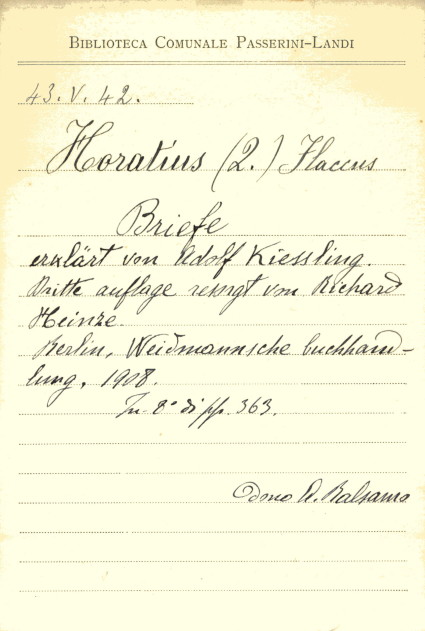 BIBLIOTECA COMUNALE PASSERINI-LANDI
43. V. 42.
Horatius (2.) Flaccus
Briefe
erklärt von Adolf Kiessling.
Dritte auflage resorgt von Richard
Heinze.
Berlin, Weidmannsche buchhand-
lung, 1908.
In-8° di pp. 363.
Dono A. Balsamo